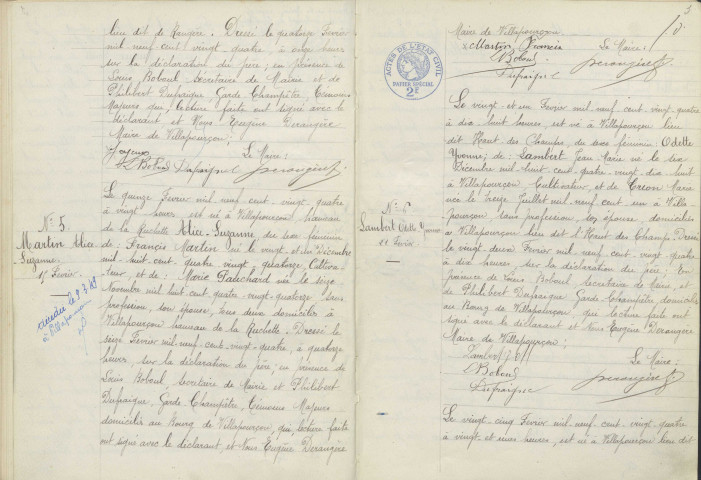 lieu dit de Rangère. Dressé le quatorze Février
mil neuf cent vingt quatre, à onze heures
sur la déclaration du père; en présence de
Louis Boboul Secrétaire de Mairie et de
Philibert Dufraigne Garde Champêtre, Témoins
Majeurs qui lecture faite ont signé avec le
déclarant et Nous Eugène Derangère
Maire de Villapourçon;
Le Maire:
Boboul Dufraigne Derangère
N° 5
Martin Alice
Suzanne
15 Février
Le quinze Février mil neuf cent vingt quatre,
à vingt heures est né à Villapourçon hameau
de la Ruchette Alice-Suzanne, du sexe féminin
de: Francis Martin né le vingt et un Décembre
mil huit cent quatre vingt quatorze Cultiva-
teur, et de: Marie Pauchard née le seize
Novembre mil huit cent quatre-vingt-quatorze sans
profession, son épouse, tous deux domiciliés à
Villapourçon hameau de la Ruchette. Dressé le
seize Février mil neuf cent vingt-quatre, à quatorze
heures, sur la déclaration du père; en présence de
Louis Boboul, Secrétaire de Mairie et Philibert
Dufraigne, Garde-Champêtre, Témoins Majeurs
domiciliés au Bourg de Villapourçon, qui lecture faite
ont signé avec le déclarant, et Nous Eugène Derangère
3
Maire de Villapourçon.
Martin Francis Le Maire:
Boboul
Dufraigne Derangère
ACTES DE L'ETAT CIVIL
PAPIER SPÉCIAL
2F
N° 6
Lambert Odette Yvonne
21 Février
Le vingt et un Février mil neuf cent vingt quatre
à dix huit heures, est né à Villapourçon lieu
dit Haut des Champs, du sexe féminin: Odette
Yvonne; de: Lambert Jean Marie né le six
Décembre mil huit cent quatre-vingt dix huit
à Villapourçon Cultivateur, et de Marie
née le treize Juillet mil neuf cent un à Villa-
pourçon sans profession, son épouse domiciliés
à Villapourçon lieu dit l'Haut des Champs. Dressé
le vingt deux Février mil neuf cent vingt quatre
à dix heures sur la déclaration du père; En
présence de Louis Boboul, Secrétaire de Mairie, et
de Philibert Dufraigne Garde Champêtre domiciliés
au Bourg de Villapourçon, qui lecture faite ont
signé avec le déclarant et Nous Eugène Derangère
Maire de Villapourçon;
Lambert J. M. Le Maire:
Boboul
Dufraigne Derangère
Le vingt-cinq Février mil neuf cent vingt quatre
à vingt et une heures, est né à Villapourçon lieu dit